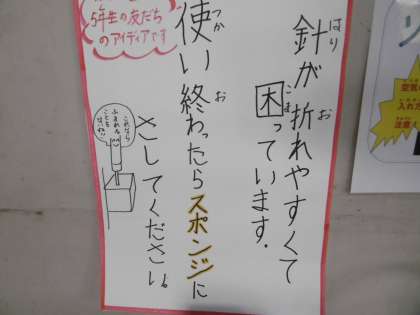 針が折れやすくて
困っています.
使い終わったらスポンジに
さしてください。
5年生の友だち
のアイディアです
これなら
ふまれる
ことも
ないね!!
空気
入れ方
注意